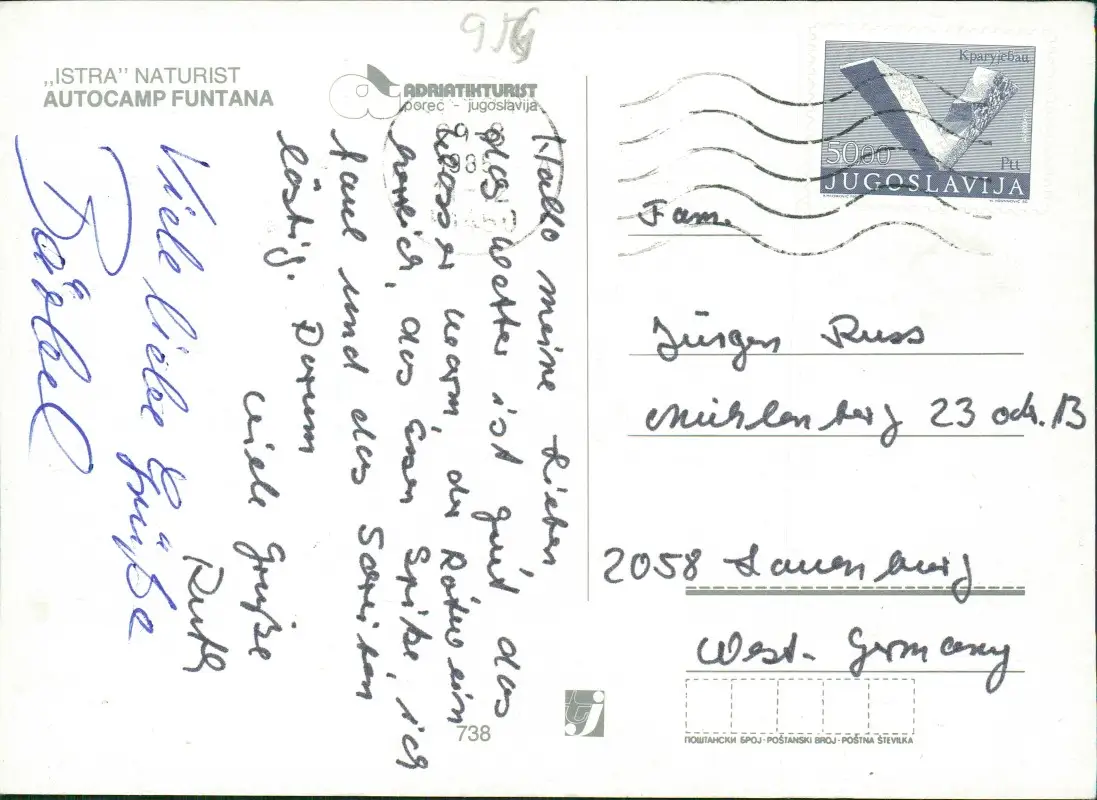 956
„ISTRA” NATURIST
AUTOCAMP FUNTANA
ADRIATIKTURIST
poreč - jugoslavija
Hallo meine Lieben
das Wetter ist gut das
Wasser warm, der Rotwein
herrlich, das Essen Spitze, ich
faul und das Schreiben
lästig. Darum
viele Grüße
Ruth
Viele liebe Grüße
Bärbel
738
Крагујевац
50.00
Ptt
JUGOSLAVIJA
Fam.
Jürgen Russ
Mühlenberg 23 od. B
2058 Lauenburg
West-Germany
ПОШТАНСКИ БРОЈ - POŠTANSKI BROJ - POŠTNA ŠTEVILKA